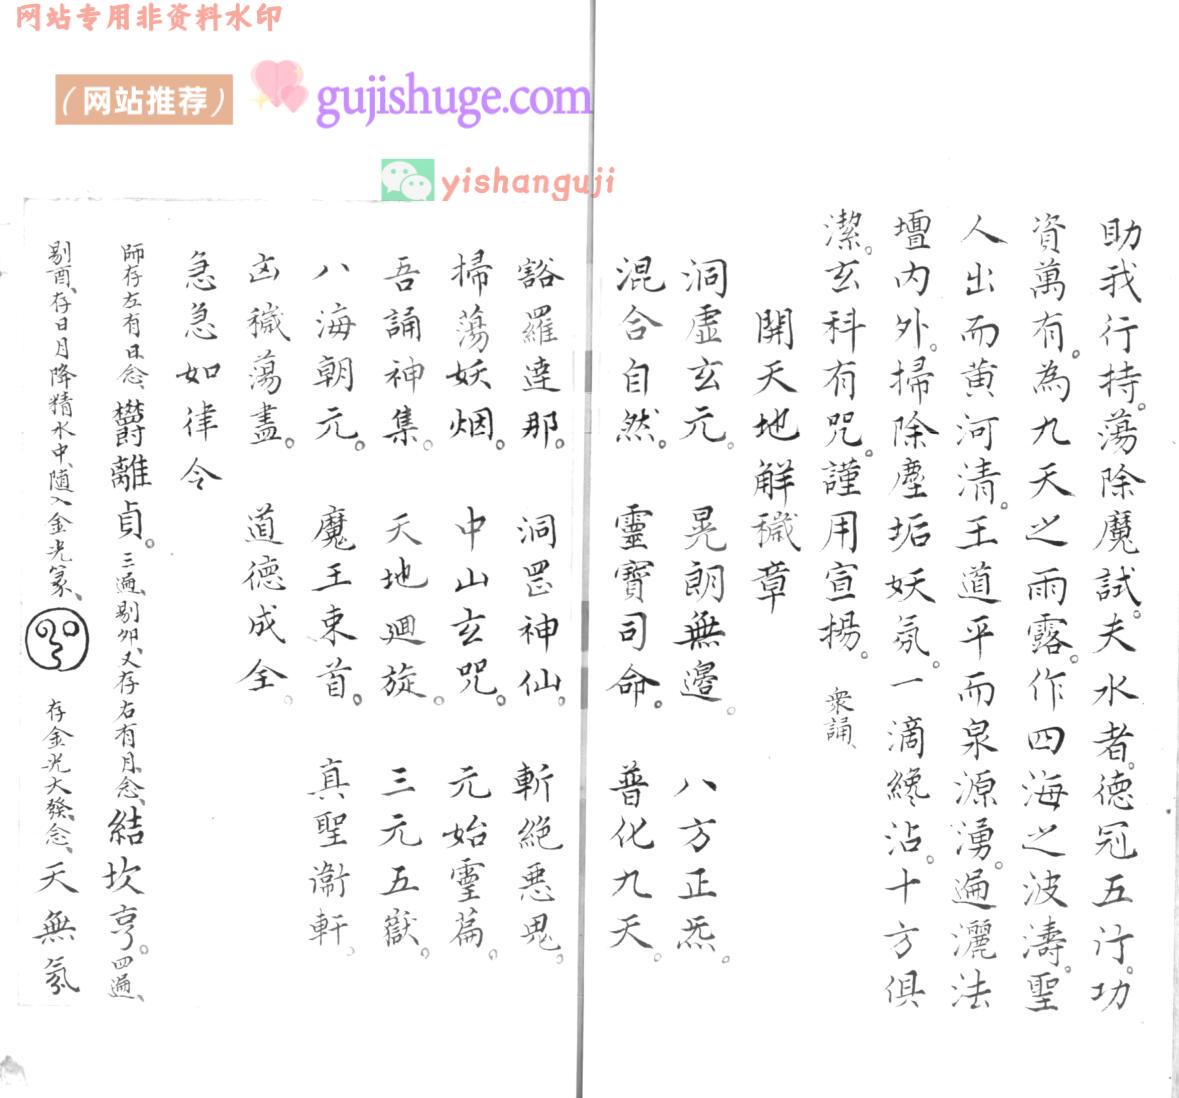 网站专用非资料水印
（网站推荐）
gujishuge.com
yishanguji
助我行持。蕩除魔試。夫水者。德冠五行。功
資萬有。為九天之雨露。作四海之波濤。聖
人出而黄河清。王道平而泉源湧。遍灑法
壇内外。掃除塵垢妖氛。一滴纔沾。十方俱
潔。玄科有咒。謹用宣揚。衆誦、
開天地解穢章
洞虛玄元。晃朗無邊。八方正炁。
混合自然。靈寶司命。普化九天。
豁羅達那。洞罡神仙。斬絶悪鬼。
掃蕩妖烟。中山玄咒。元始靈篇。
吾誦神集。天地廻旋。三元五嶽。
八海朝元。魔王束首。真聖衞軒、
凶穢蕩盡。道德成全。
急急如律令
師存左有日、念、欝離貞。三遍、剔卯、又存右有月、念、結坎亨。四遍、
剔酉、存日月降精水中、随入金光篆、存金光大發、念、天無氛